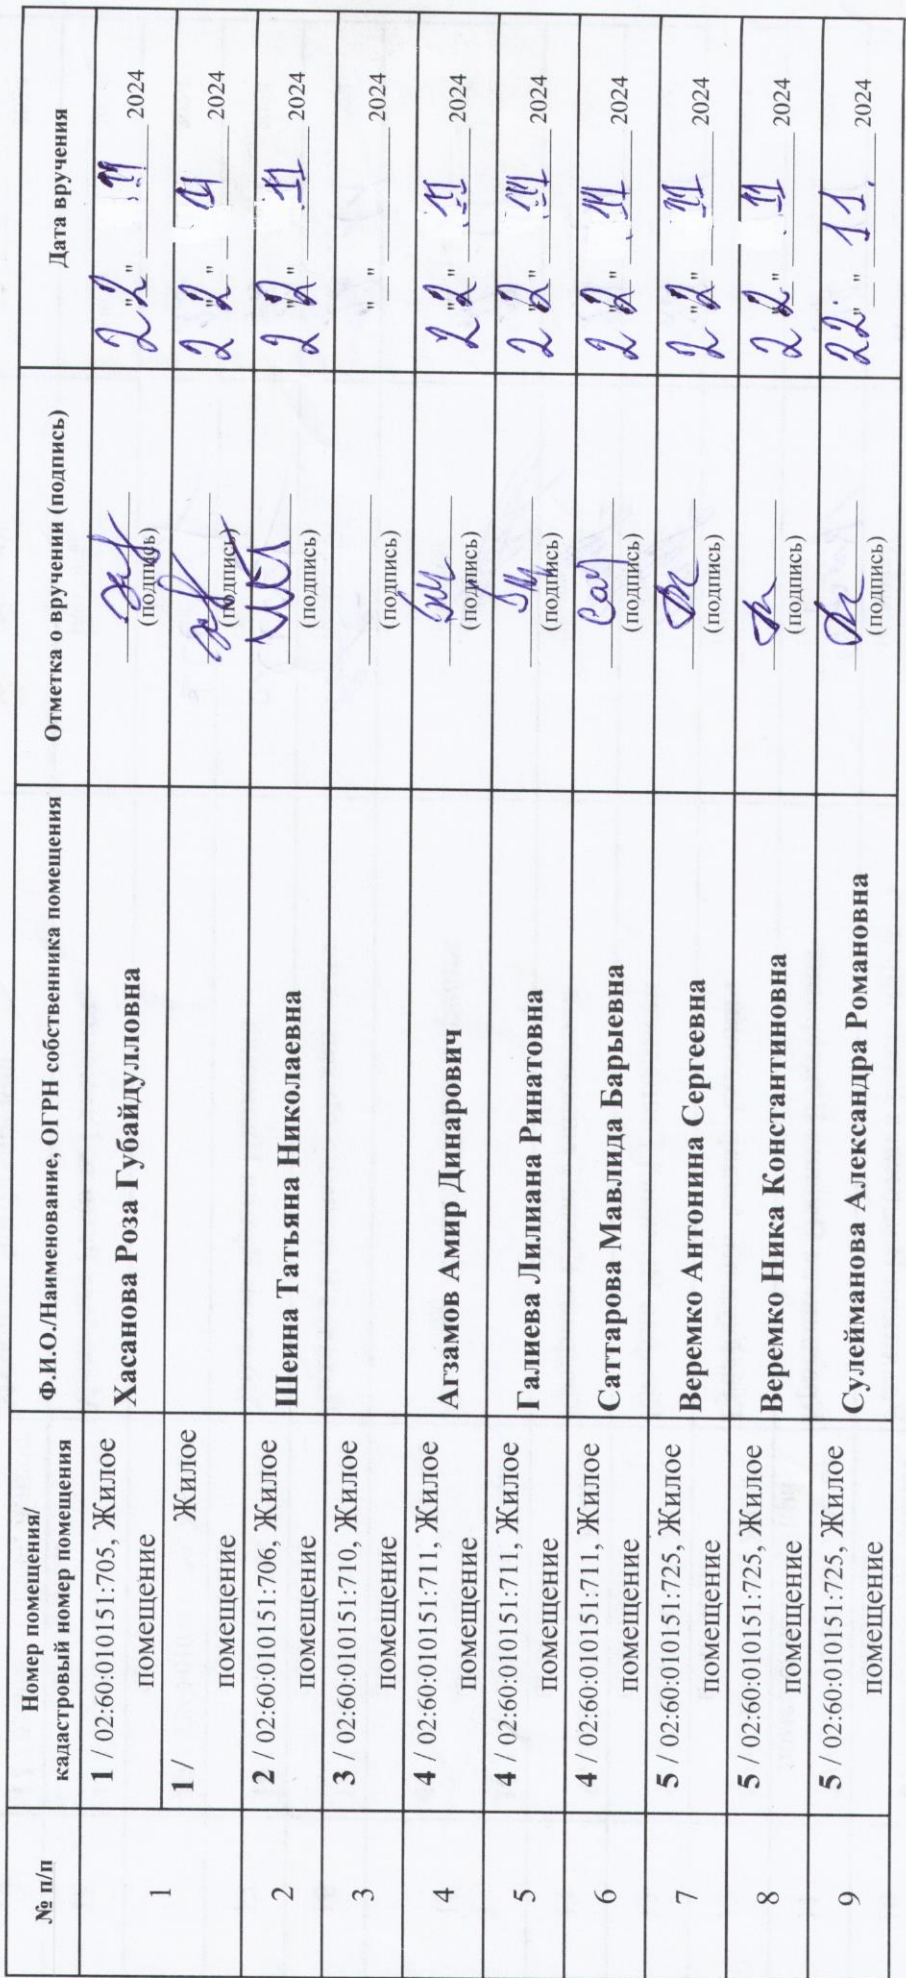 № п/п
Номер помещения/
кадастровый номер помещения
Ф.И.О./Наименование, ОГРН собственника помещения
Отметка о вручении (подпись)
Дата вручения
1
1 / 02:60:010151:705, Жилое
помещение
Хасанова Роза Губайдулловна
(подпись)
"22" .11 2024
1 / Жилое
помещение
(подпись)
"22" 11 2024
2
2 / 02:60:010151:706, Жилое
помещение
Шеина Татьяна Николаевна
(подпись)
"22" .11 2024
3
3 / 02:60:010151:710, Жилое
помещение
(подпись)
"___" 2024
4
4 / 02:60:010151:711, Жилое
помещение
Агзамов Амир Динарович
(подпись)
"22" .11 2024
5
4 / 02:60:010151:711, Жилое
помещение
Галиева Лилиана Ринатовна
(подпись)
"22" .11 2024
6
4 / 02:60:010151:711, Жилое
помещение
Саттарова Мавлида Барыевна
(подпись)
"22" .11 2024
7
5 / 02:60:010151:725, Жилое
помещение
Веремко Антонина Сергеевна
(подпись)
"22" .11 2024
8
5 / 02:60:010151:725, Жилое
помещение
Веремко Ника Константиновна
(подпись)
"22" .11 2024
9
5 / 02:60:010151:725, Жилое
помещение
Сулейманова Александра Романовна
(подпись)
22. 11. 2024